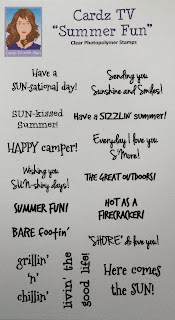 Cardz TV
"Summer Fun"
Clear Photopolymer Stamps
Have a
SUN-sational day!
Sending you
Sunshine and Smiles!
SUN-kissed
Summer!
Have a SIZZLIN' summer!
HAPPY camper!
Everyday I love you
S'More!
Wishing you
SUN-shiny days!
THE GREAT OUTDOORS!
SUMMER FUN!
HOT AS A
FIRECRACKER!
BARE footin'
"SHORE" do love you!
grillin'
'n'
chillin'
livin' the
good life!
Here comes
the SUN!